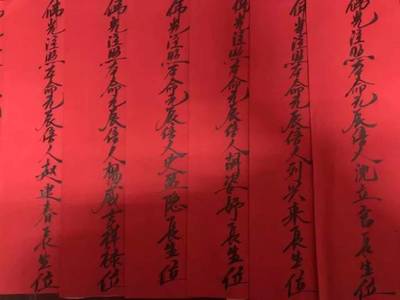 佛光注照本命元辰信人沈立言長生位
佛光注照本命元辰信人刘兴来長生位
佛光注照本命元辰信人胡姿妤長生位
佛光注照本命元辰信人隐長生位
佛光注照本命元辰信人楊威祥禄位
佛光注照本命元辰信人敖建春長生位